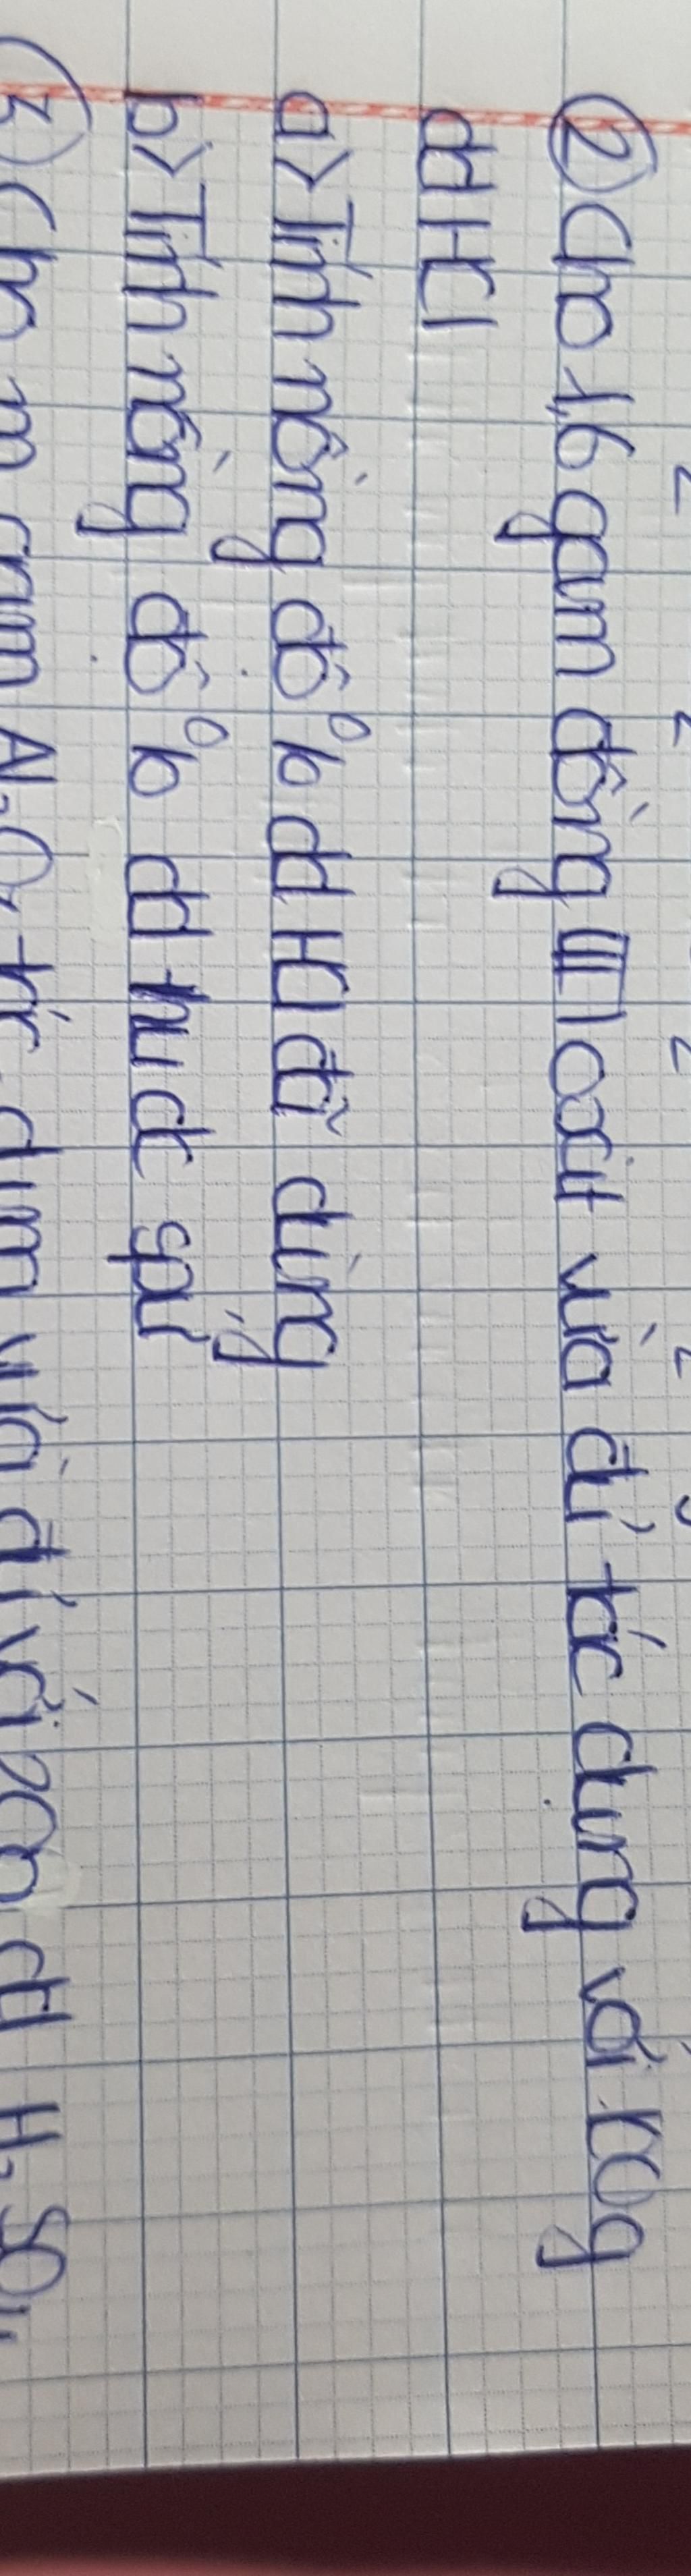 ② Cho 1,6 gam đồng (II) oxit vừa đủ tác dụng với 100g
dd HCl
a> Tính nồng độ % dd HCl đã dùng
b> Tính nồng độ % dd thu đc sau p/ứ
③ Cho m gam Al2O3 tác dụng vừa đủ với 200 dd H2SO4